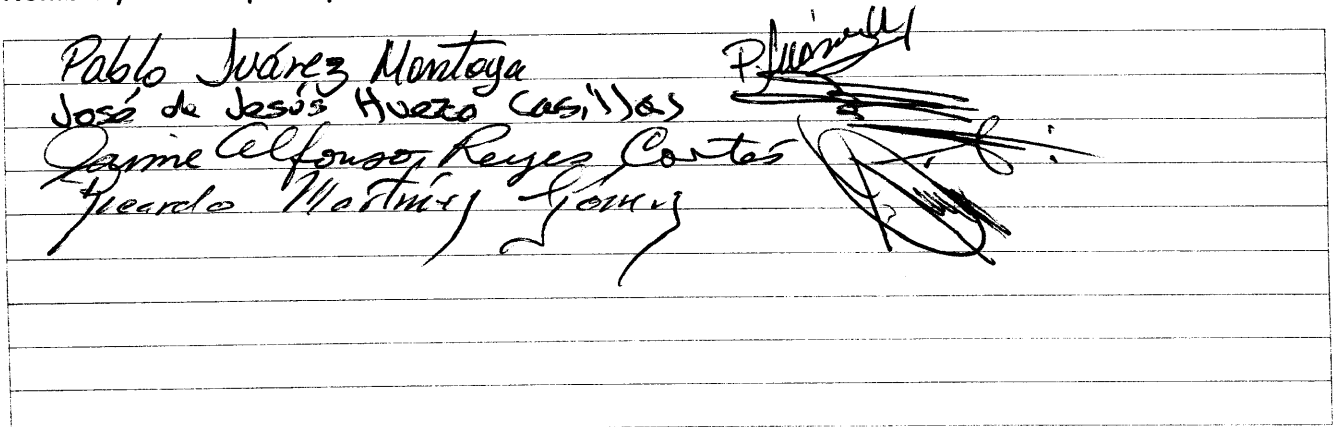 Pablo Juárez Montoya
José de Jesús Huezo Casillas
Jaime Alfonso Reyes Cortés
Ricardo Martínez Gómez